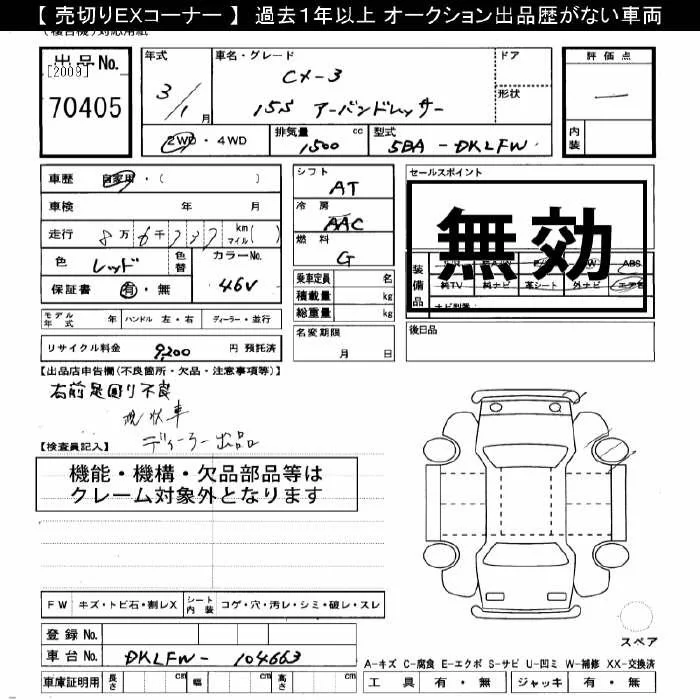 【 売切りEXコーナー 】 過去1年以上 オークション出品歴がない車両
出品No.
[2009]
70405
年式
3/1月
車名・グレード
CX-3
15S アーバンドレッサー
ドア
形状
評価点
内装
2WD・4WD
排気量
1500 cc
型式
5BA-DKLFW
車歴 自家用・( )
車検 年 月
走行 8万6千737 km マイル( )
色 レッド
色替
カラーNo.
46V
保証書 有・無
シフト
AT
冷房
AAC
燃料
G
乗車定員 名
積載量 kg
総重量 kg
名変期限
月 日
セールスポイント
無効
装備品
ABS
純TV 純ナビ 革シート 外ナビ エアB
後日品
モデル年式 年 ハンドル 左・右 ディーラー・並行
リサイクル料金 9,200 円 預託済
【出品店申告欄(不良箇所・欠品・注意事項等)】
右前足回り不良
現状車
ディーラー出品
【検査員記入】
機能・機構・欠品部品等は
クレーム対象外となります
FW キズ・トビ石・割レX シート内装 コゲ・穴・汚レ・シミ・破レ・スレ
登録No.
車台No. DKLFW-104663
車庫証明用 長さ cm 幅 cm 高さ cm
スペア
A-キズ C-腐食 E-エクボ S-サビ U-凹ミ W-補修 XX-交換済
工具 有・無 ジャッキ 有・無